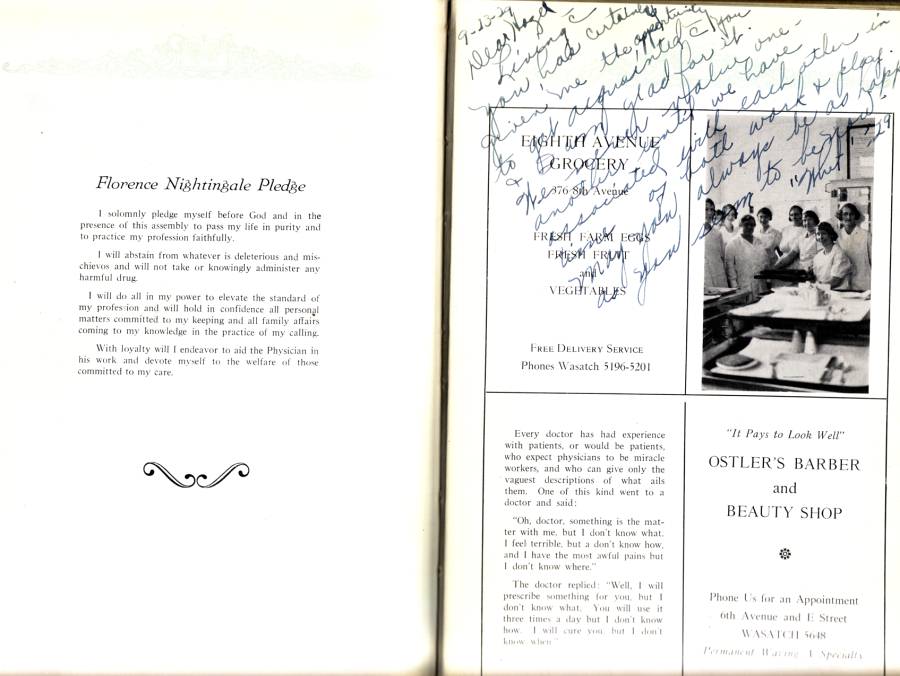 Florence Nightingale Pledge
I solomnly pledge myself before God and in the
presence of this assembly to pass my life in purity and
to practice my profession faithfully.
I will abstain from whatever is deleterious and mis-
chievos and will not take or knowingly administer any
harmful drug.
I will do all in my power to elevate the standard of
my profession and will hold in confidence all personal
matters committed to my keeping and all family affairs
coming to my knowledge in the practice of my calling.
With loyalty will I endeavor to aid the Physician in
his work and devote myself to the welfare of those
committed to my care.
9-23-29
Dear Hazel
Living c̄
you has certainly
given me the opportunity
to get acquainted c̄ you
& I am glad for it.
We never value one-
another until we have
associated with each other in
time of both work & play.
May you always be as happy
as you seem to be now.
"What 29
EIGHTH AVENUE
GROCERY
376 8th Avenue
FRESH FARM EGGS
FRESH FRUIT
and
VEGETABLES
FREE DELIVERY SERVICE
Phones Wasatch 5196-5201
Every doctor has had experience
with patients, or would be patients,
who expect physicians to be miracle
workers, and who can give only the
vaguest descriptions of what ails
them. One of this kind went to a
doctor and said:
"Oh, doctor, something is the mat-
ter with me, but I don't know what.
I feel terrible, but a don't know how,
and I have the most awful pains but
I don't know where."
The doctor replied: "Well, I will
prescribe something for you, but I
don't know what. You will use it
three times a day but I don't know
how. I will cure you, but I don't
know when."
"It Pays to Look Well"
OSTLER'S BARBER
and
BEAUTY SHOP
Phone Us for an Appointment
6th Avenue and E Street
WASATCH 5648
Permanent Waving A Specialty